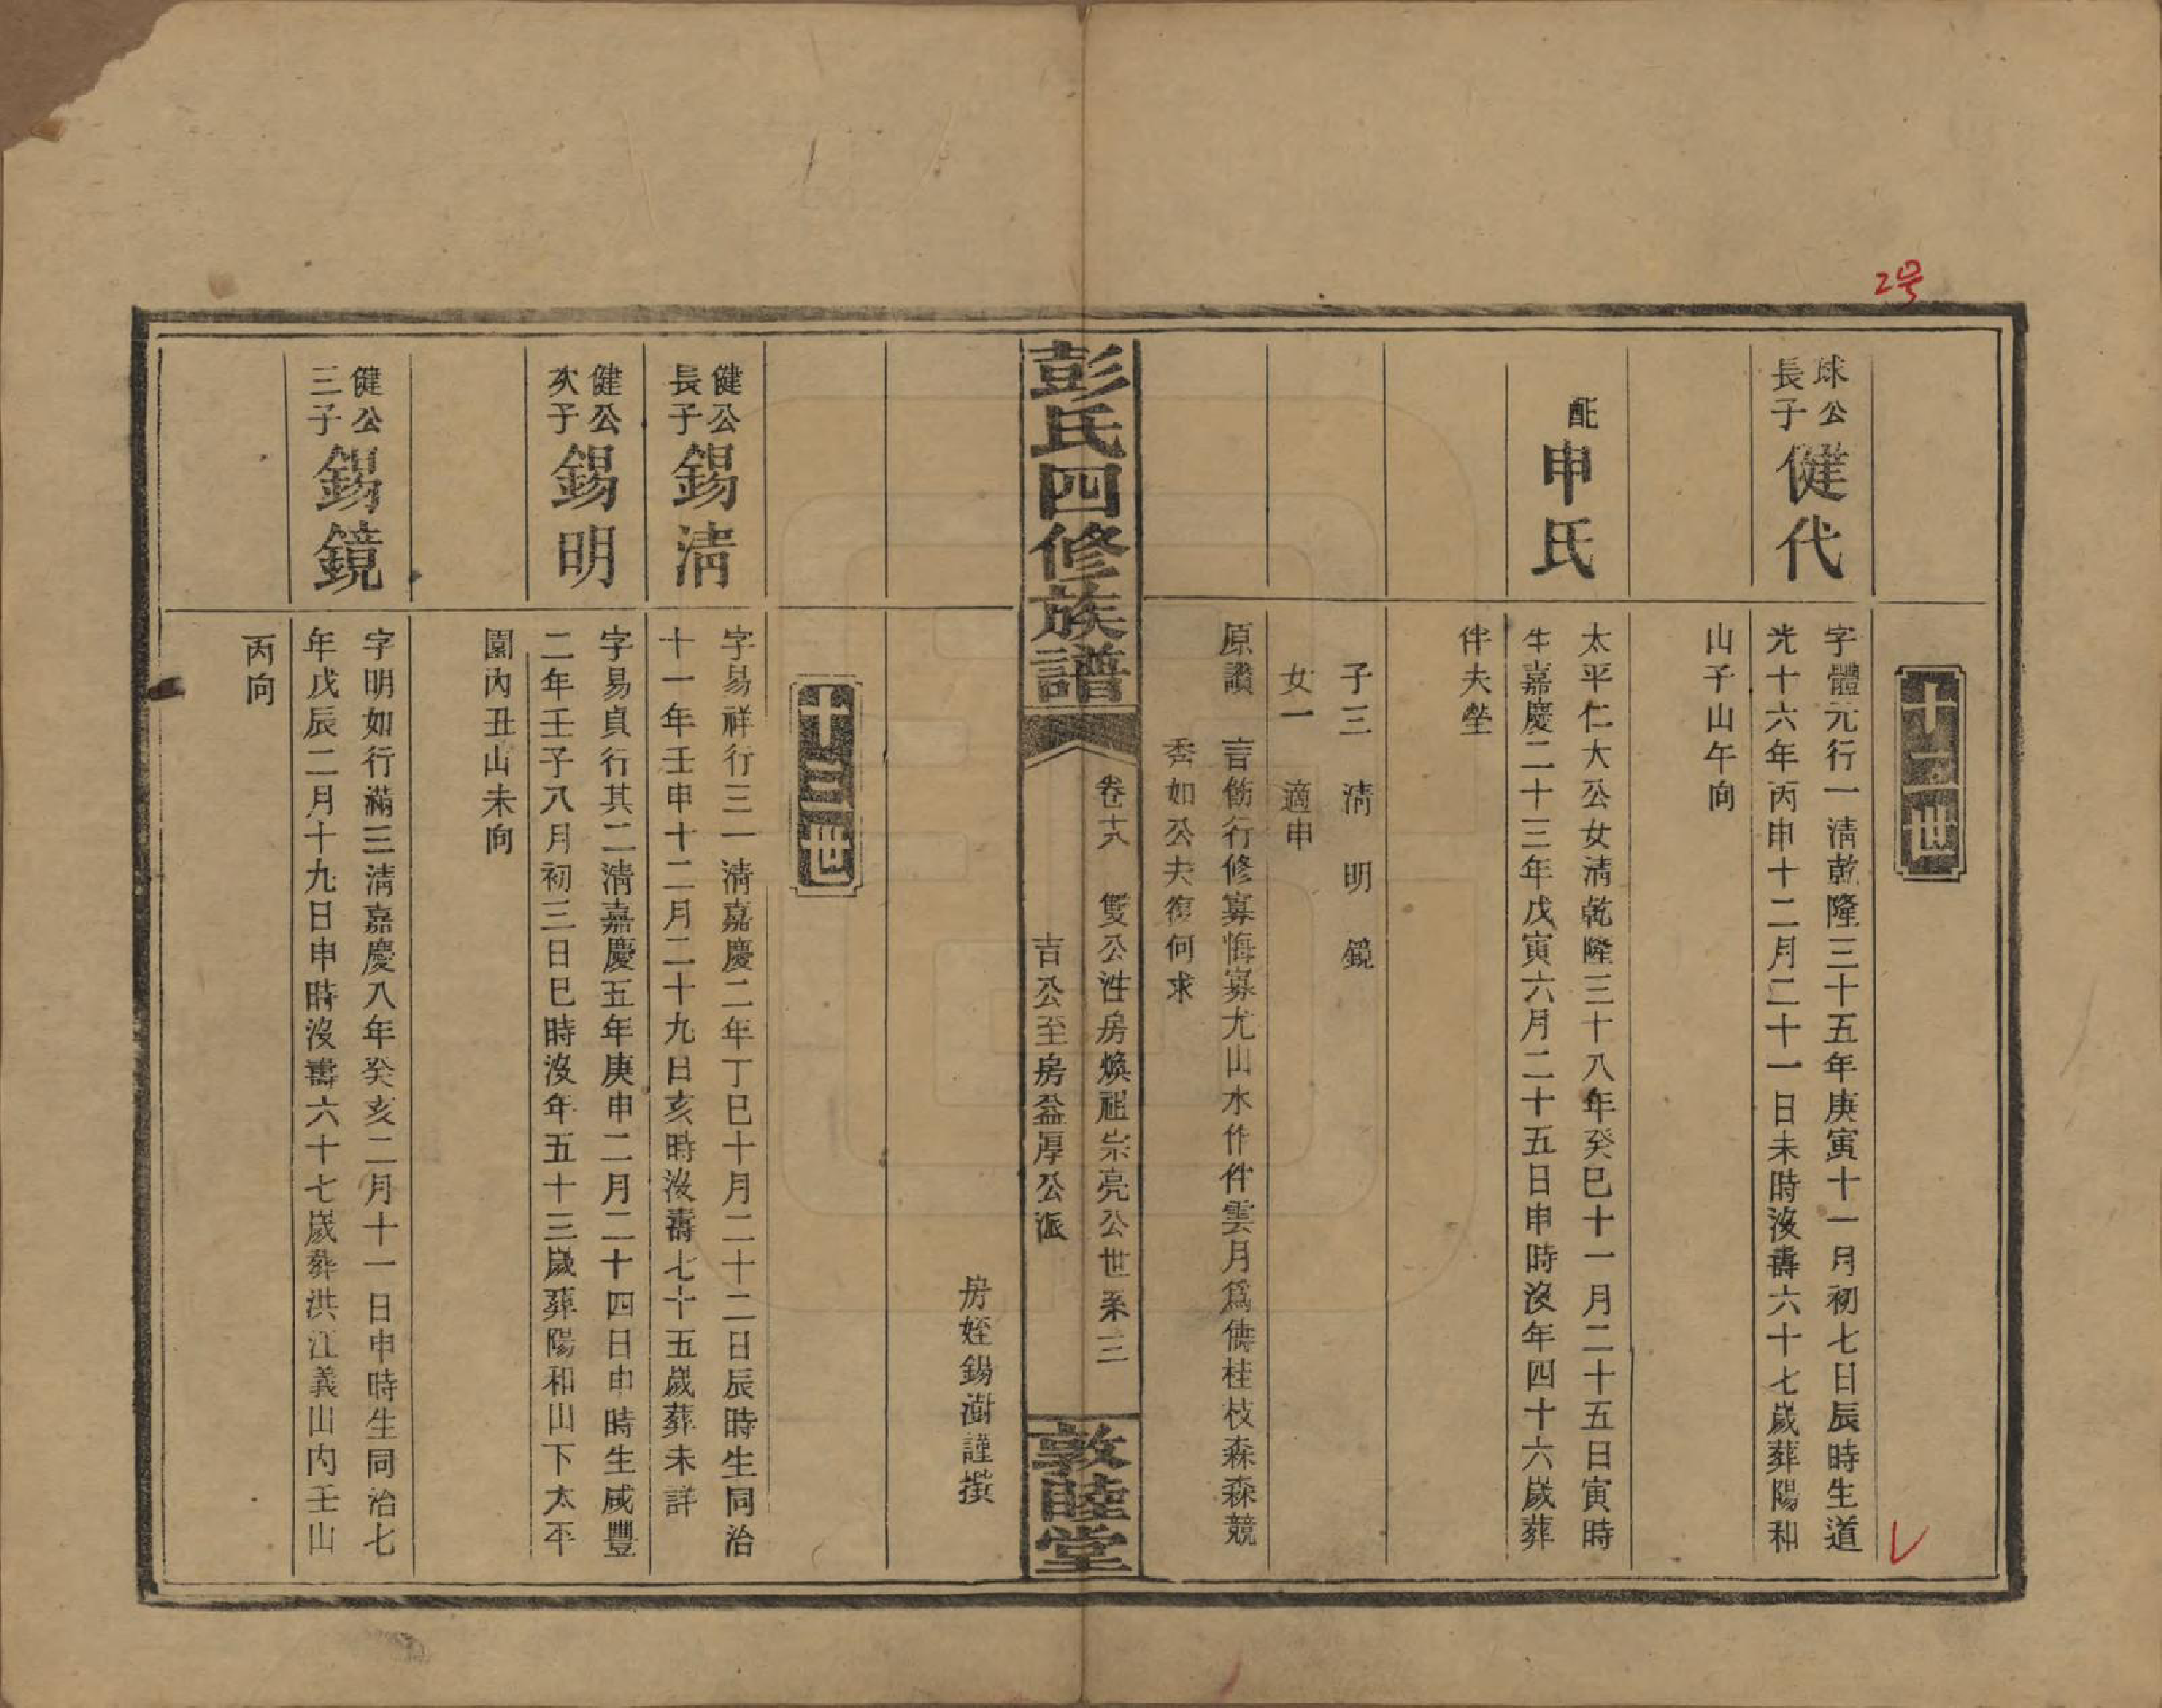 2号
十二世
球公
長子
健代
字體元行一清乾隆三十五年庚寅十一月初七日辰時生道
光十六年丙申十二月二十一日未時沒壽六十七歲葬陽和
山子山午向
配
申氏
太平仁大公女清乾隆三十八年癸巳十一月二十五日寅時
生嘉慶二十三年戊寅六月二十五日申時沒年四十六歲葬
伴夫塋
子三 清 明 鏡
女一 適申
原讚 言飭行修寡悔寡尤山水作件雲月為儔桂枝森森競
秀如公夫復何求
彭氏四修族譜
卷十八 雙公泩房煥祖宗亮公世系三
吉公至房益厚公派
敦睦堂
房姪錫澍謹撰
十三世
健公
長子
錫清
字易祥行三一清嘉慶二年丁巳十月二十二日辰時生同治
十一年壬申十二月二十九日亥時沒壽七十五歲葬未詳
健公
次子
錫明
字易貞行其二清嘉慶五年庚申二月二十四日申時生咸豐
二年壬子八月初三日巳時沒年五十三歲葬陽和山下太平
園內丑山未向
健公
三子
錫鏡
字明如行滿三清嘉慶八年癸亥二月十一日申時生同治七
年戊辰二月十九日申時沒壽六十七歲葬洪江義山內壬山
丙向